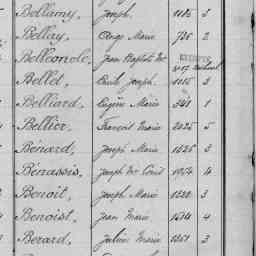 Bellamy, Joseph. 1185 3
Bellay, Ange Marie 735 2
Belleondle, Jean Baptiste Me
Bellet, Emile Joseph. 1155 3
Belliard, Eugène Marie 341 1
Bellier, François Marie 2025 5
Bénard, Joseph Marie 1525 3
Bénassis, Joseph Me Louis 1954 4
Benoit, Joseph Marie 1222 3
Benoist, Jean Marie 1574 4
Berard, Julien Marie 1251 3